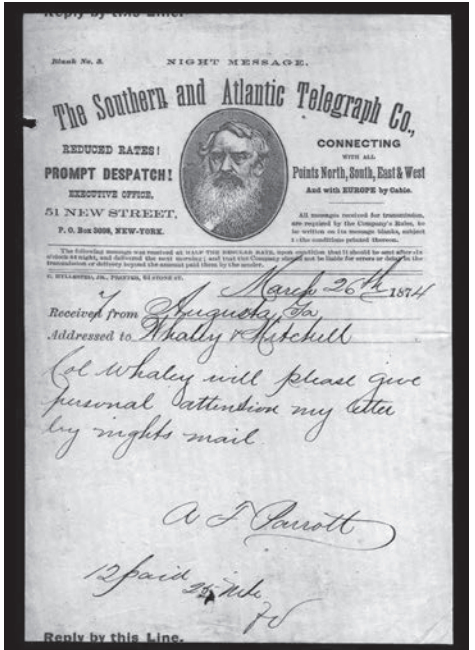 Reply by this Line.
Blank No. 3.
NIGHT MESSAGE.
The Southern and Atlantic Telegraph Co.,
REDUCED RATES!
PROMPT DESPATCH!
EXECUTIVE OFFICE,
51 NEW STREET,
P. O. Box 3098, NEW-YORK.
CONNECTING
WITH ALL
Points North, South, East & West
And with EUROPE by Cable.
All messages received for transmission,
are required by the Company's Rules, to
be written on its message blanks, subject
to the conditions printed thereon.
The following message was received at HALF THE REGULAR RATE, upon condition that it should be sent after six
o'clock at night, and delivered the next morning; and that the Company should not be liable for errors or delay in the
transmission or delivery beyond the amount paid them by the sender.
PRINTER,
March 26th 1874
Received from Augusta Ga
Addressed to Whaley & Mitchell
Col Whaley will please give
personal attention my letter
by nights mail.
A F Parrott
12 paid
Reply by this Line.